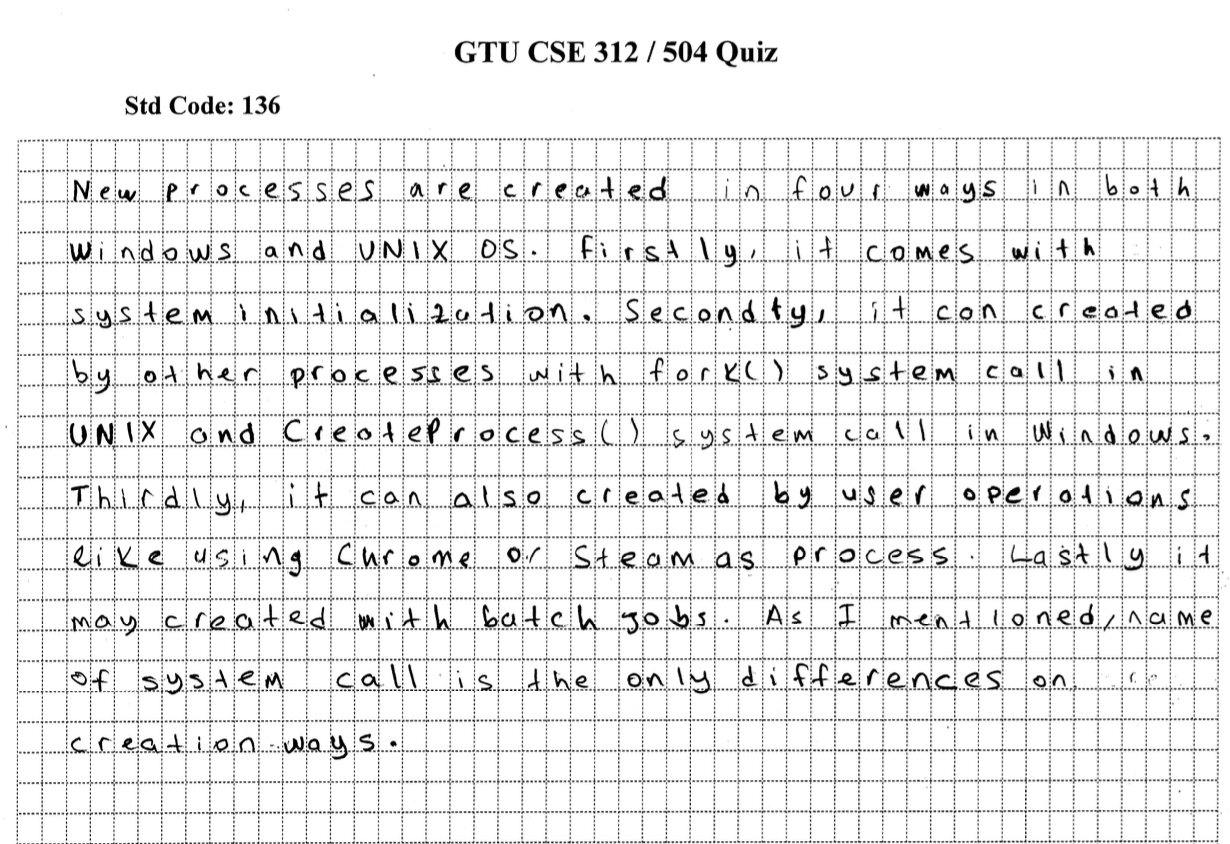 GTU CSE 312 / 504 Quiz
Std Code: 136
New processes are created in four ways in both
Windows and UNIX OS. Firstly, it comes with
system initialization. Secondly, it can created
by other processes with fork() system call in
UNIX and CreateProcess() system call in Windows.
Thirdly, it can also created by user operations
like using Chrome or Steam as process. Lastly it
may created with batch jobs. As I mentioned, name
of system call is the only differences on
creation ways.